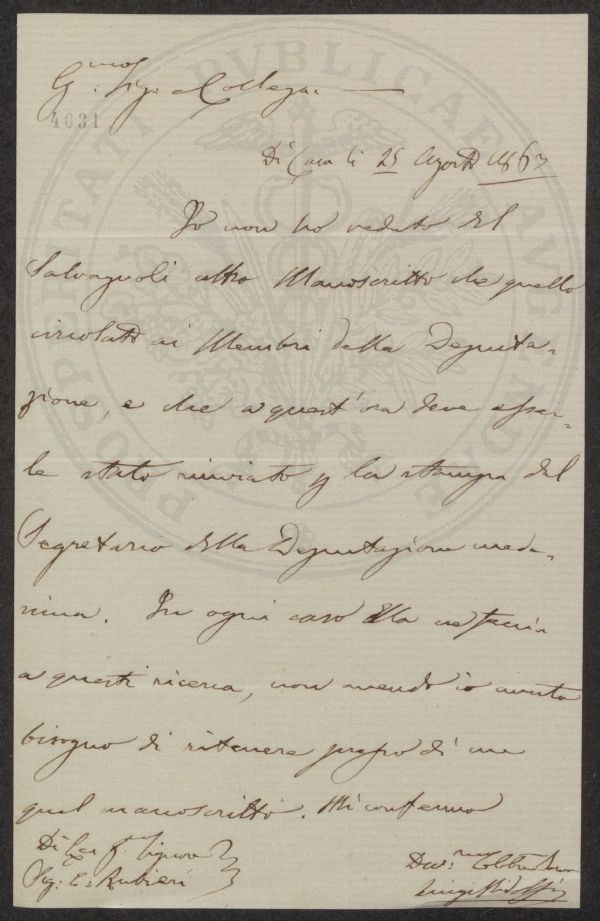 G.mo Sig.r Collega
4031
Di Casa li 25 Agosto 1867
Io non ho veduto del
Salvagnoli altro Manoscritto che quello
circolato ai Membri della Deputa-
zione, e che a quest'ora deve esser-
le stato rinviato p la stampa dal
Segretario della Deputazione mede-
sima. In ogni caso Ella ne faccia
a questi ricerca, non avendo io avuto
bisogno di ritenere presso di me
quel manoscritto. Mi confermo
Di Lei
Sig. E. Rubieri
Dev.mo
Luigi Ridolfi
PROSPERITATI PVBLICAE AVGENDAE